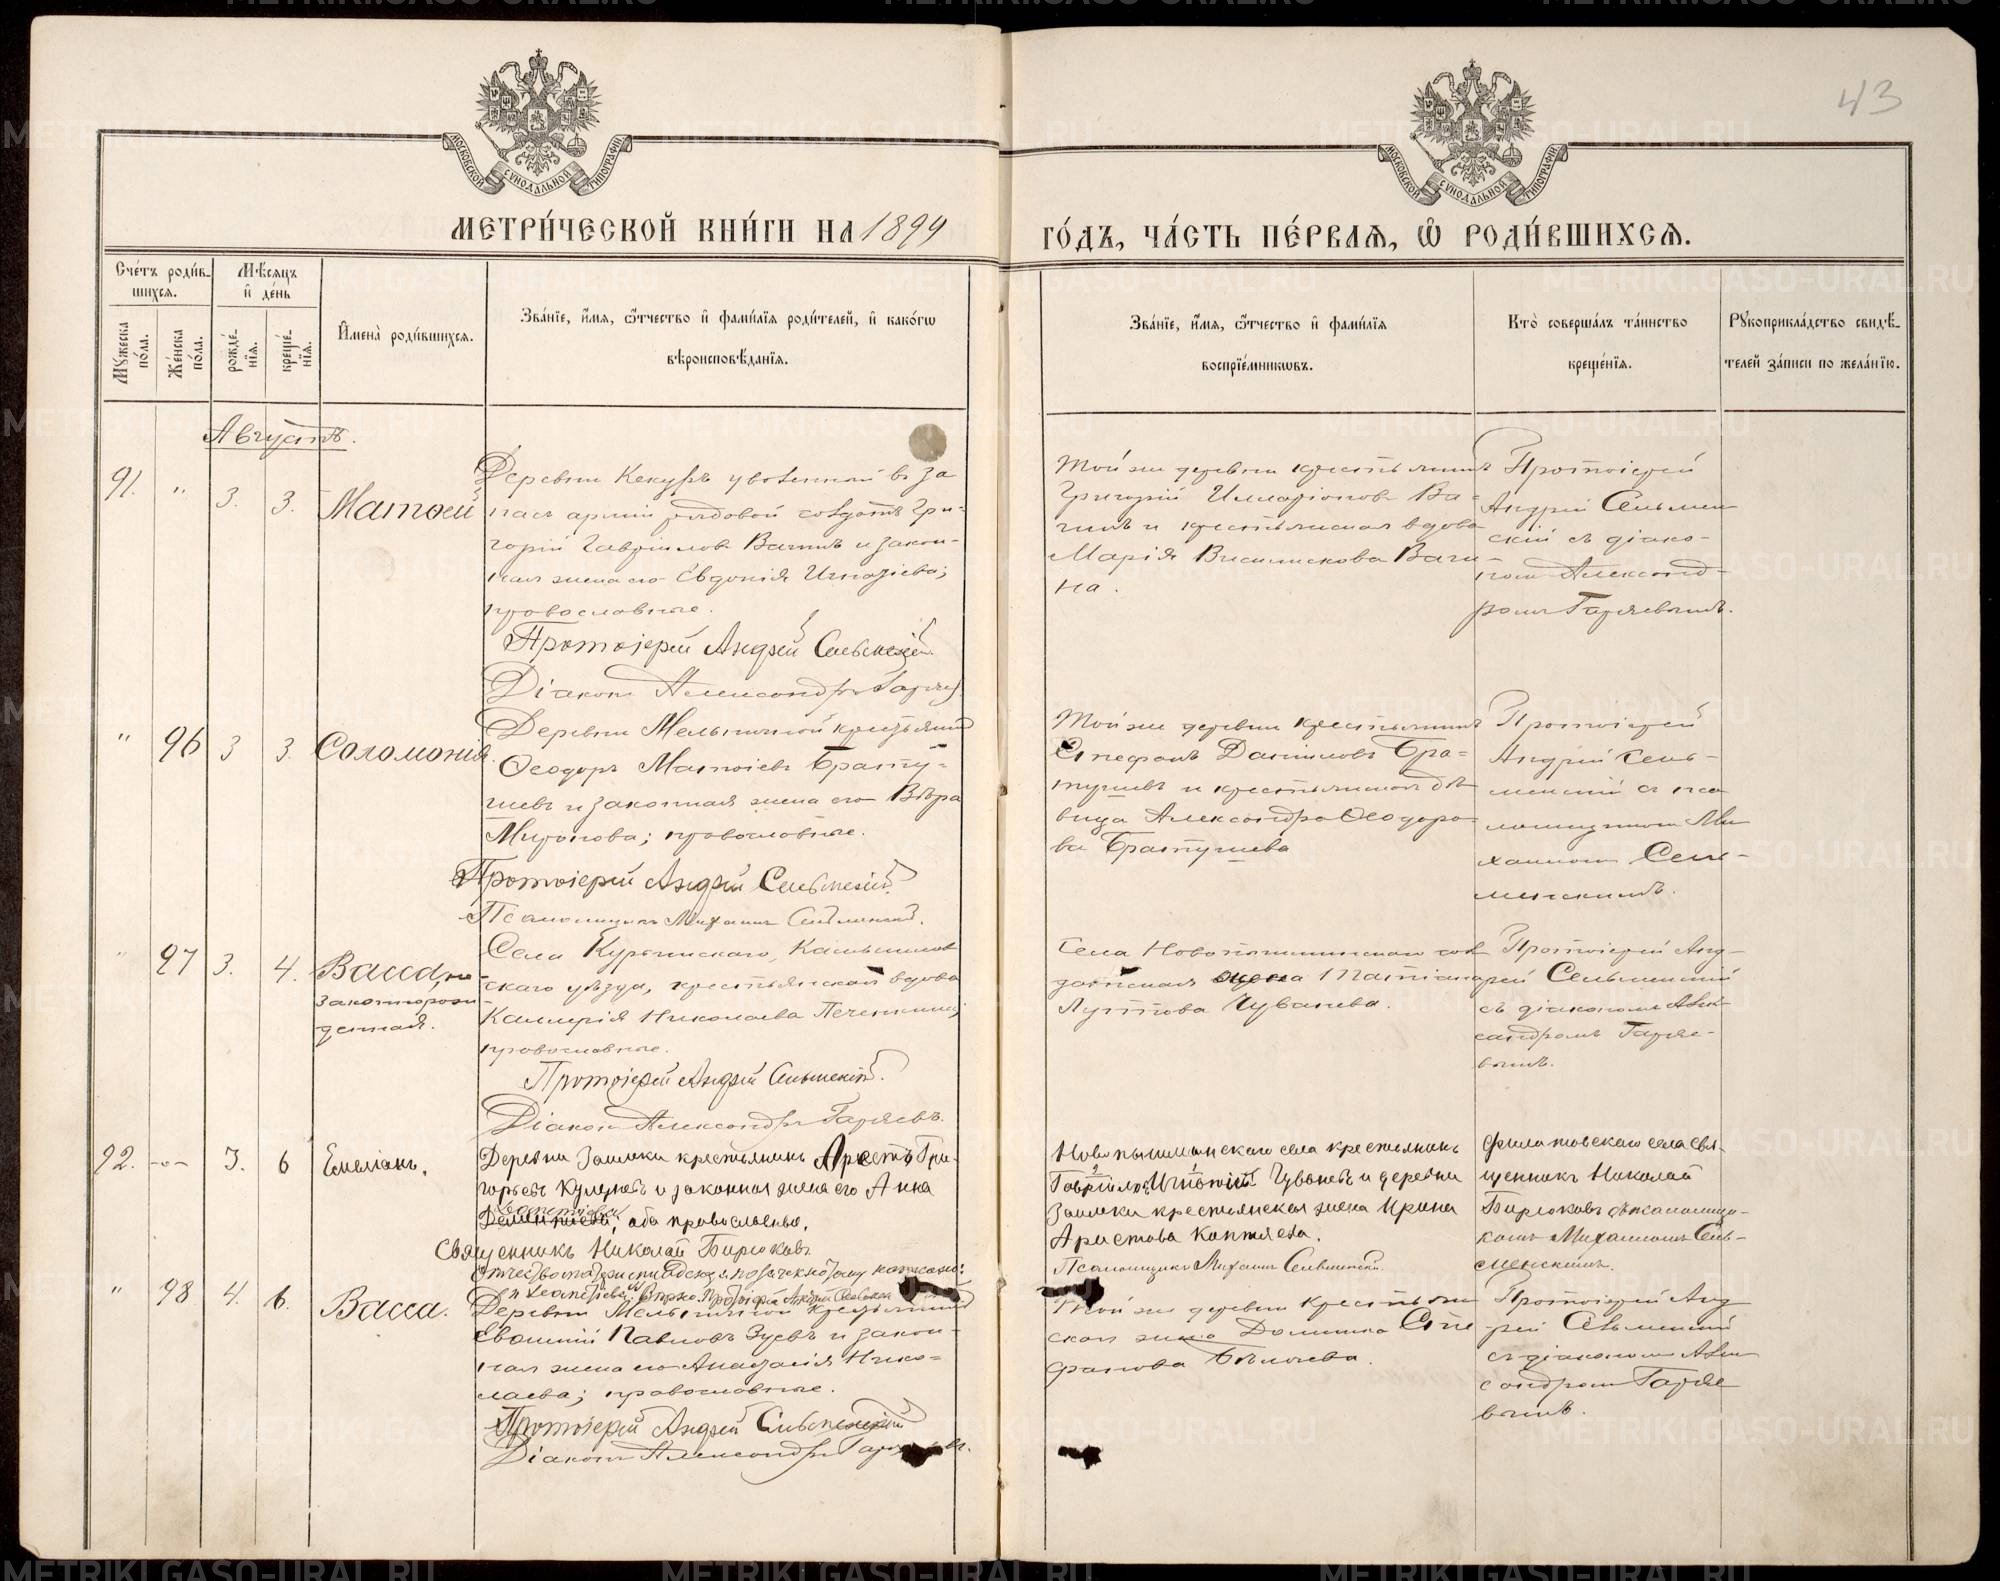 43
МОСКОВСКОЙ СѴНОДАЛЬНОЙ ТИПОГРАФІИ
МОСКОВСКОЙ СѴНОДАЛЬНОЙ ТИПОГРАФІИ
МЕТРИ́ЧЕСКОЙ КНИ́ГИ НА 1899 ГО́ДЪ, ЧА́СТЬ ПЕ́РВАѦ, Ѿ РОДИ́ВШИХСѦ.
Сче́тъ роди́в-
шихсѧ.
Мѣ́сѧцъ
и҆ де́нь
Мꙋ́жеска по́ла.
Же́нска по́ла.
рожде́-
нїѧ.
креще́-
нїѧ.
И҆мена̀ роди́вшихсѧ.
Зва́нїе, и҆́мѧ, ѻ҆́тчество и҆ фами́лїѧ роди́телей, и҆ како́гѡ
вѣроисповѣ́данїѧ.
Зва́нїе, и҆́мѧ, ѻ҆́тчество и҆ фами́лїѧ
воспрїе́мникѡвъ.
Кто̀ соверша́лъ та́инство
креще́нїѧ.
Рꙋкоприкла́дство свидѣ́-
телей за́писи по жела́нїю.
Августъ.
91. " 3. 3. Матѳей
Деревни Кекуръ уволенной въ за
пасъ арміи рядовой солдатъ Гри-
горій Гавріиловъ Вагинъ и закон-
ная жена его Евдокія Игнатіева;
православные.
Протоіерей Андрей Сельменскій.
Діаконъ Александръ Гаряев
Той же деревни крестьянинъ
Григорій Илларіоновъ Ва-
гинъ и крестьянская вдова
Марія Ваги-
на.
Протоіерей
Андрей Сельмен
скій съ діако-
номъ Александ-
ромъ Гаряевымъ.
" 96 3 3. Соломонія.
Деревни Мельничной крестьянинъ
Ѳеодоръ Матѳіевъ Братчи-
шевъ и законная жена его Вѣра
Миронова; православные.
Протоіерей Андрей Сельменскій.
Псаломщикъ Михаилъ Сельменскій.
Той же деревни крестьянинъ
Стефанъ Даниловъ Бра-
и крестьянская дѣ
вица Александра Ѳеодоро-
ва
Протоіерей
Андрей Сель-
менскій съ пса
ломщикомъ Ми
хаиломъ Селе-
менскимъ.
" 97 3. 4. Васса, не
законнорож
денная.
Села Курьинскаго, Камышлов
скаго уѣзда, крестьянской вдова
Каллерія Николаева Печенкина;
православные.
Протоіерей Андрей Сельменскій.
Діаконъ Александръ Гаряевъ.
Села Новопышминскаго сол
датская жена Татіана
Чуванева.
Протоіерей Анд-
рей Сельменскій
съ діакономъ Алек
сандромъ Гаряе-
вымъ.
92. -"- 3. 6 Емеліанъ.
Деревни Заимки крестьянинъ Аристъ Гри-
горьевъ и законная жена его Анна
Леонтіева
оба православные.
Священникъ Николай Бирюковъ
Той же деревни крестьян
Новопышминскаго села крестьянинъ
Гавріилъ Игнатіевъ Чуваневъ и деревни
Заимки крестьянская жена Ирина
Аристова Коптяева.
Псаломщикъ Михаилъ Сельменскій.
Филатовскаго села свя-
щенникъ Николай
Бирюковъ съ псаломщи-
комъ Михаиломъ Сель-
менскимъ.
" 98 4. 6. Васса.
Деревни Мельничной крестьянинъ
Евѳимій Павловъ Зуевъ и закон-
ная жена его Анастасія Нико-
лаева; православные.
Протоіерей Андрей Сельменскій
Діаконъ Александръ
ская жена Домника Сте
фанова
Протоіерей Анд
рей Сельменскій
съ діакономъ Алек
сандромъ Гаряе
вымъ.